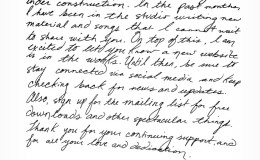 under construction. In the past months,
I have been in the studio writing new
material and songs that I cannot wait
to share with you. On top of this, I am
excited to let you know a new website
is in the works. Until then, be sure to
stay connected via social media and keep
checking back for news and updates.
Also, sign up for the mailing list for free
downloads and other spectacular things.
Thank you for your continuing support, and
for all your love and dedication.